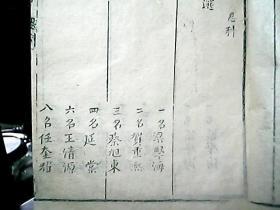 月刊
一名梁學海
二名賀重熙
三名蔡旭東
四名廷棠
六名王清源
八名任奎